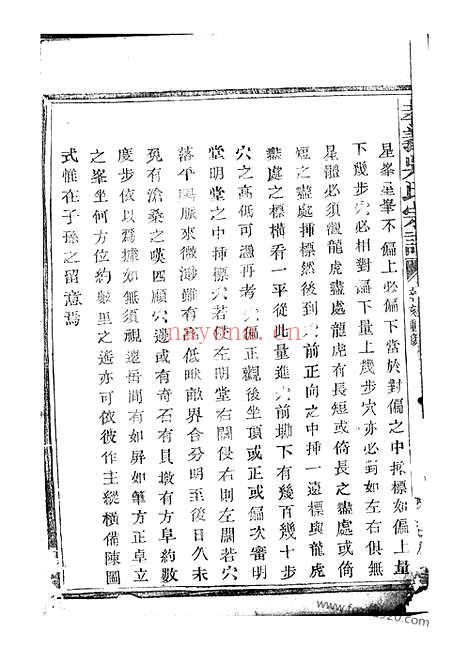 吳氏宗譜
星峯星峯不偏上必偏下當於對偏之中揷標如偏上量
下幾步穴必相對偏下量上幾步穴亦必對如左右俱無
星體必須觀龍虎盡處龍虎有長短或倚長之盡處或倚
短之盡處揷標然後到穴前正向之中揷一遠標與龍虎
盡處之標橫看一平從此量進穴前坳下有幾百幾十步
穴之高低可憑再考穴偏正觀後坐頂或正或偏次審明
堂明堂可揷標穴若使左明堂右關侵右則左關若穴
落平田脈來微渺難有高低畎畝界合分明至後日久未
免有滄桑之嘆四顧穴邊或有奇石有貝墩有方阜約數
度步依以爲據如無須視遠岳間有如屏如筆方正卓立
之峯坐何方位約數里之遙亦可依彼作主縱橫備陳圖
式惟在子孫之留意焉
nayona.cn